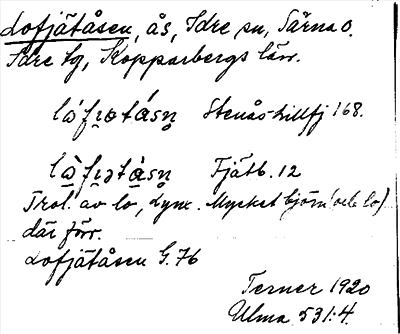 Lofjätåsen, ås, Idre sn, Särna o.
Idre tg, Kopparbergs län.
lófi̯ətásn̥ Stenås-hillfj 168.
lò̱fi̯ətàsn̥ Fjätb. 12
Trol. av lo, Lynx. Mycket björn (och lo)
där förr.
Lofjätåsen G. 76
Terner 1920
Ulma 531:4.